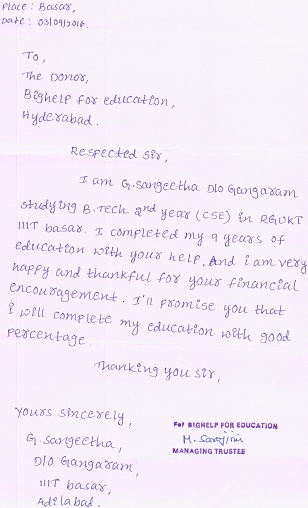 Place : Basar,
Date : 03/09/2016.
To,
The Donor,
Bighelp for education,
Hyderabad.
Respected Sir,
I am G.Sangeetha D/O Gangaram
studying B.Tech 2nd year (CSE) in RGUKT
IIIT basar. I completed my 9 years of
education with your help. And i am very
happy and thankful for your financial
encouragement. I'll promise you that
i will complete my education with good
percentage.
Thanking you sir,
yours sincerely,
G. Sangeetha,
D/O Gangaram,
IIIT basar,
Adilabad.
For BIGHELP FOR EDUCATION
M. Sarojini
MANAGING TRUSTEE